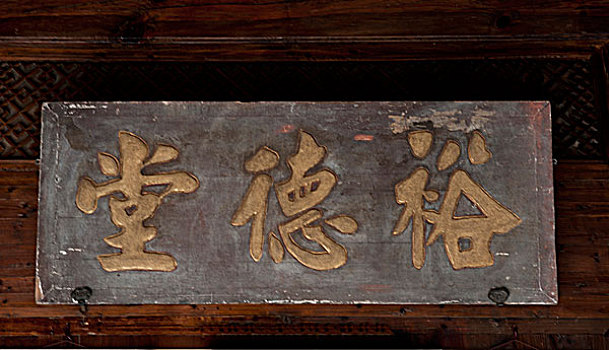 裕德堂